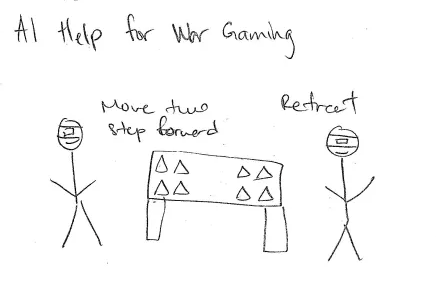 AI Help for War Gaming
Move two
step forward
Retreat